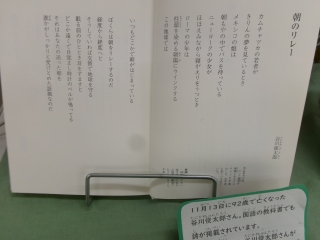 朝のリレー
谷川俊太郎
カムチャツカの若者が
きりんの夢を見ているとき
メキシコの娘は
朝もやの中でバスを待っている
ニューヨークの少女が
ほほえみながら寝がえりをうつとき
ローマの少年は
柱頭を染める朝陽にウインクする
この地球では
いつもどこかで朝がはじまっている
ぼくらは朝をリレーするのだ
経度から経度へと
そうしていわば交替で地球を守る
眠る前のひととき耳をすますと
どこか遠くで目覚時計のベルが鳴ってる
それはあなたの送った朝を
誰かがしっかりと受けとめた証拠なのだ
11月13日に92歳で亡くなった
谷川俊太郎さん。国語の教科書でも
詩が掲載されています。
谷川俊太郎さんが